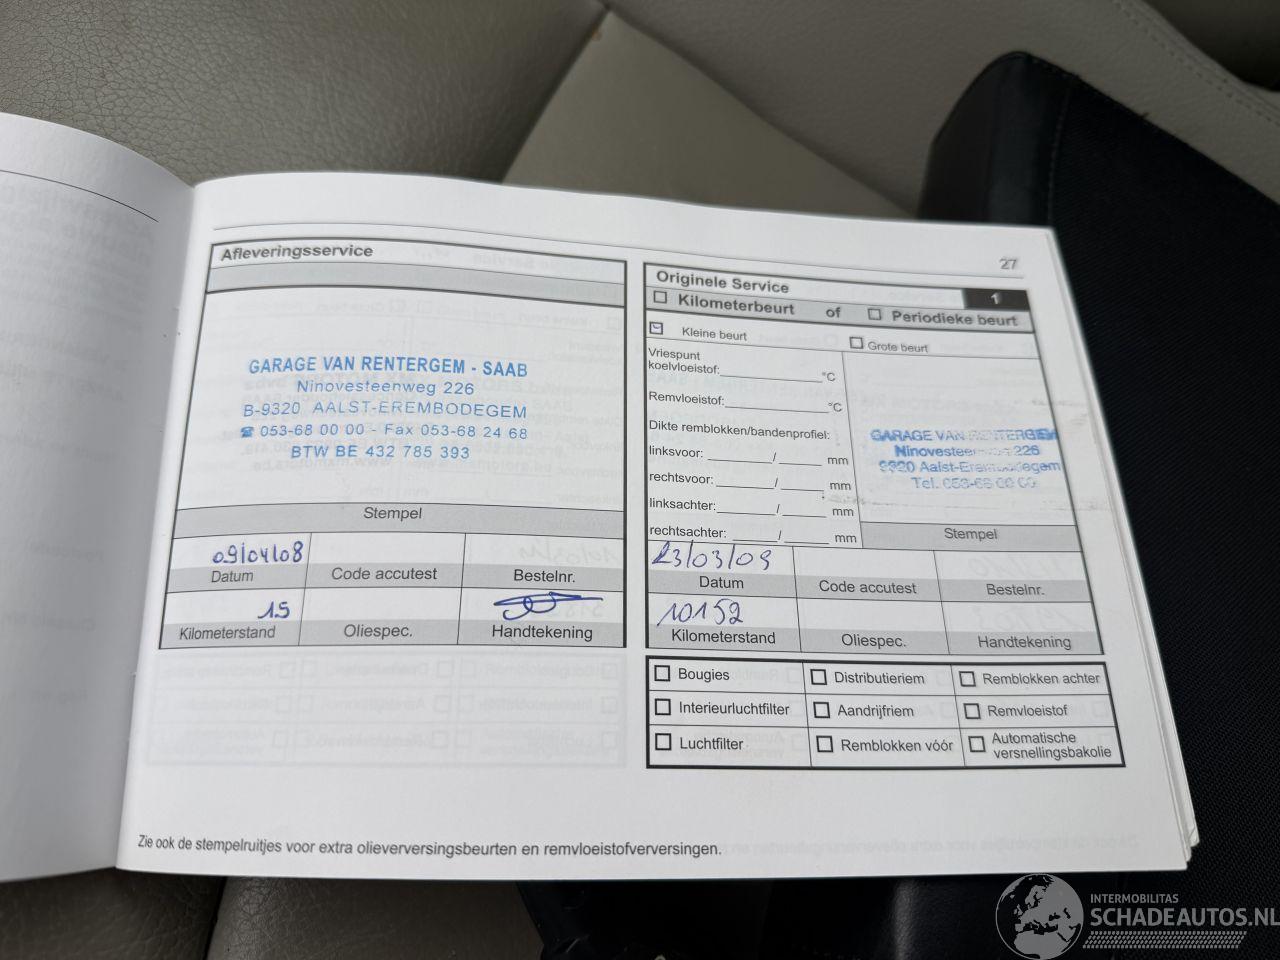 27
Afleveringsservice
GARAGE VAN RENTERGEM - SAAB
Ninovesteenweg 226
B-9320 AALST-EREMBODEGEM
☎ 053-68 00 00 - Fax 053-68 24 68
BTW BE 432 785 393
Stempel
09/04/08
Datum
Code accutest
Bestelnr.
15
Kilometerstand
Oliespec.
Handtekening
Originele Service
1
Kilometerbeurt of Periodieke beurt
Kleine beurt
Grote beurt
Vriespunt
koelvloeistof: °C
Remvloeistof: °C
Dikte remblokken/bandenprofiel:
linksvoor: / mm
rechtsvoor: / mm
linksachter: / mm
rechtsachter: / mm
GARAGE VAN RENTERGEM
Ninovesteenweg 226
9320 Aalst-Erembodegem
Tel. 053-68 00 00
Stempel
23/03/09
Datum
Code accutest
Bestelnr.
10152
Kilometerstand
Oliespec.
Handtekening
Bougies
Distributieriem
Remblokken achter
Interieurluchtfilter
Aandrijfriem
Remvloeistof
Luchtfilter
Remblokken vóór
Automatische
versnellingsbakolie
Zie ook de stempelruitjes voor extra olieverversingsbeurten en remvloeistofverversingen.
INTERMOBILITAS
SCHADEAUTOS.NL